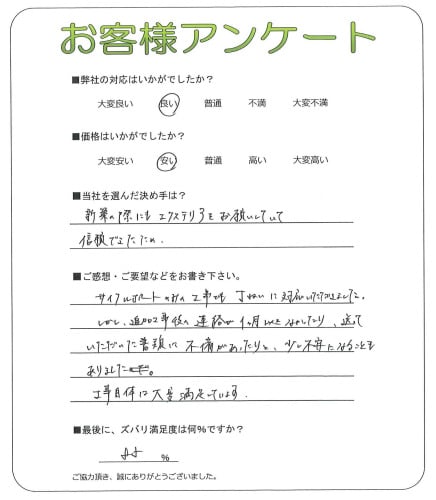 お客様アンケート
■弊社の対応はいかがでしたか？
大変良い 良い 普通 不満 大変不満
■価格はいかがでしたか？
大変安い 安い 普通 高い 大変高い
■当社を選んだ決め手は？
新築の際にも エクステリアをお願いしていて
信頼できたため.
■ご感想・ご要望などをお書き下さい。
サイクルポートのみの工事でも 丁ねいに対応いただきました。
しかし、追加工事後の連絡が1ヶ月以上なかったり、送って
いただいた書類に不備があったりと、少し不安になることも
ありました。
工事自体は大変満足しています.
■最後に、ズバリ満足度は何%ですか？
%
ご協力頂き、誠にありがとうございました。